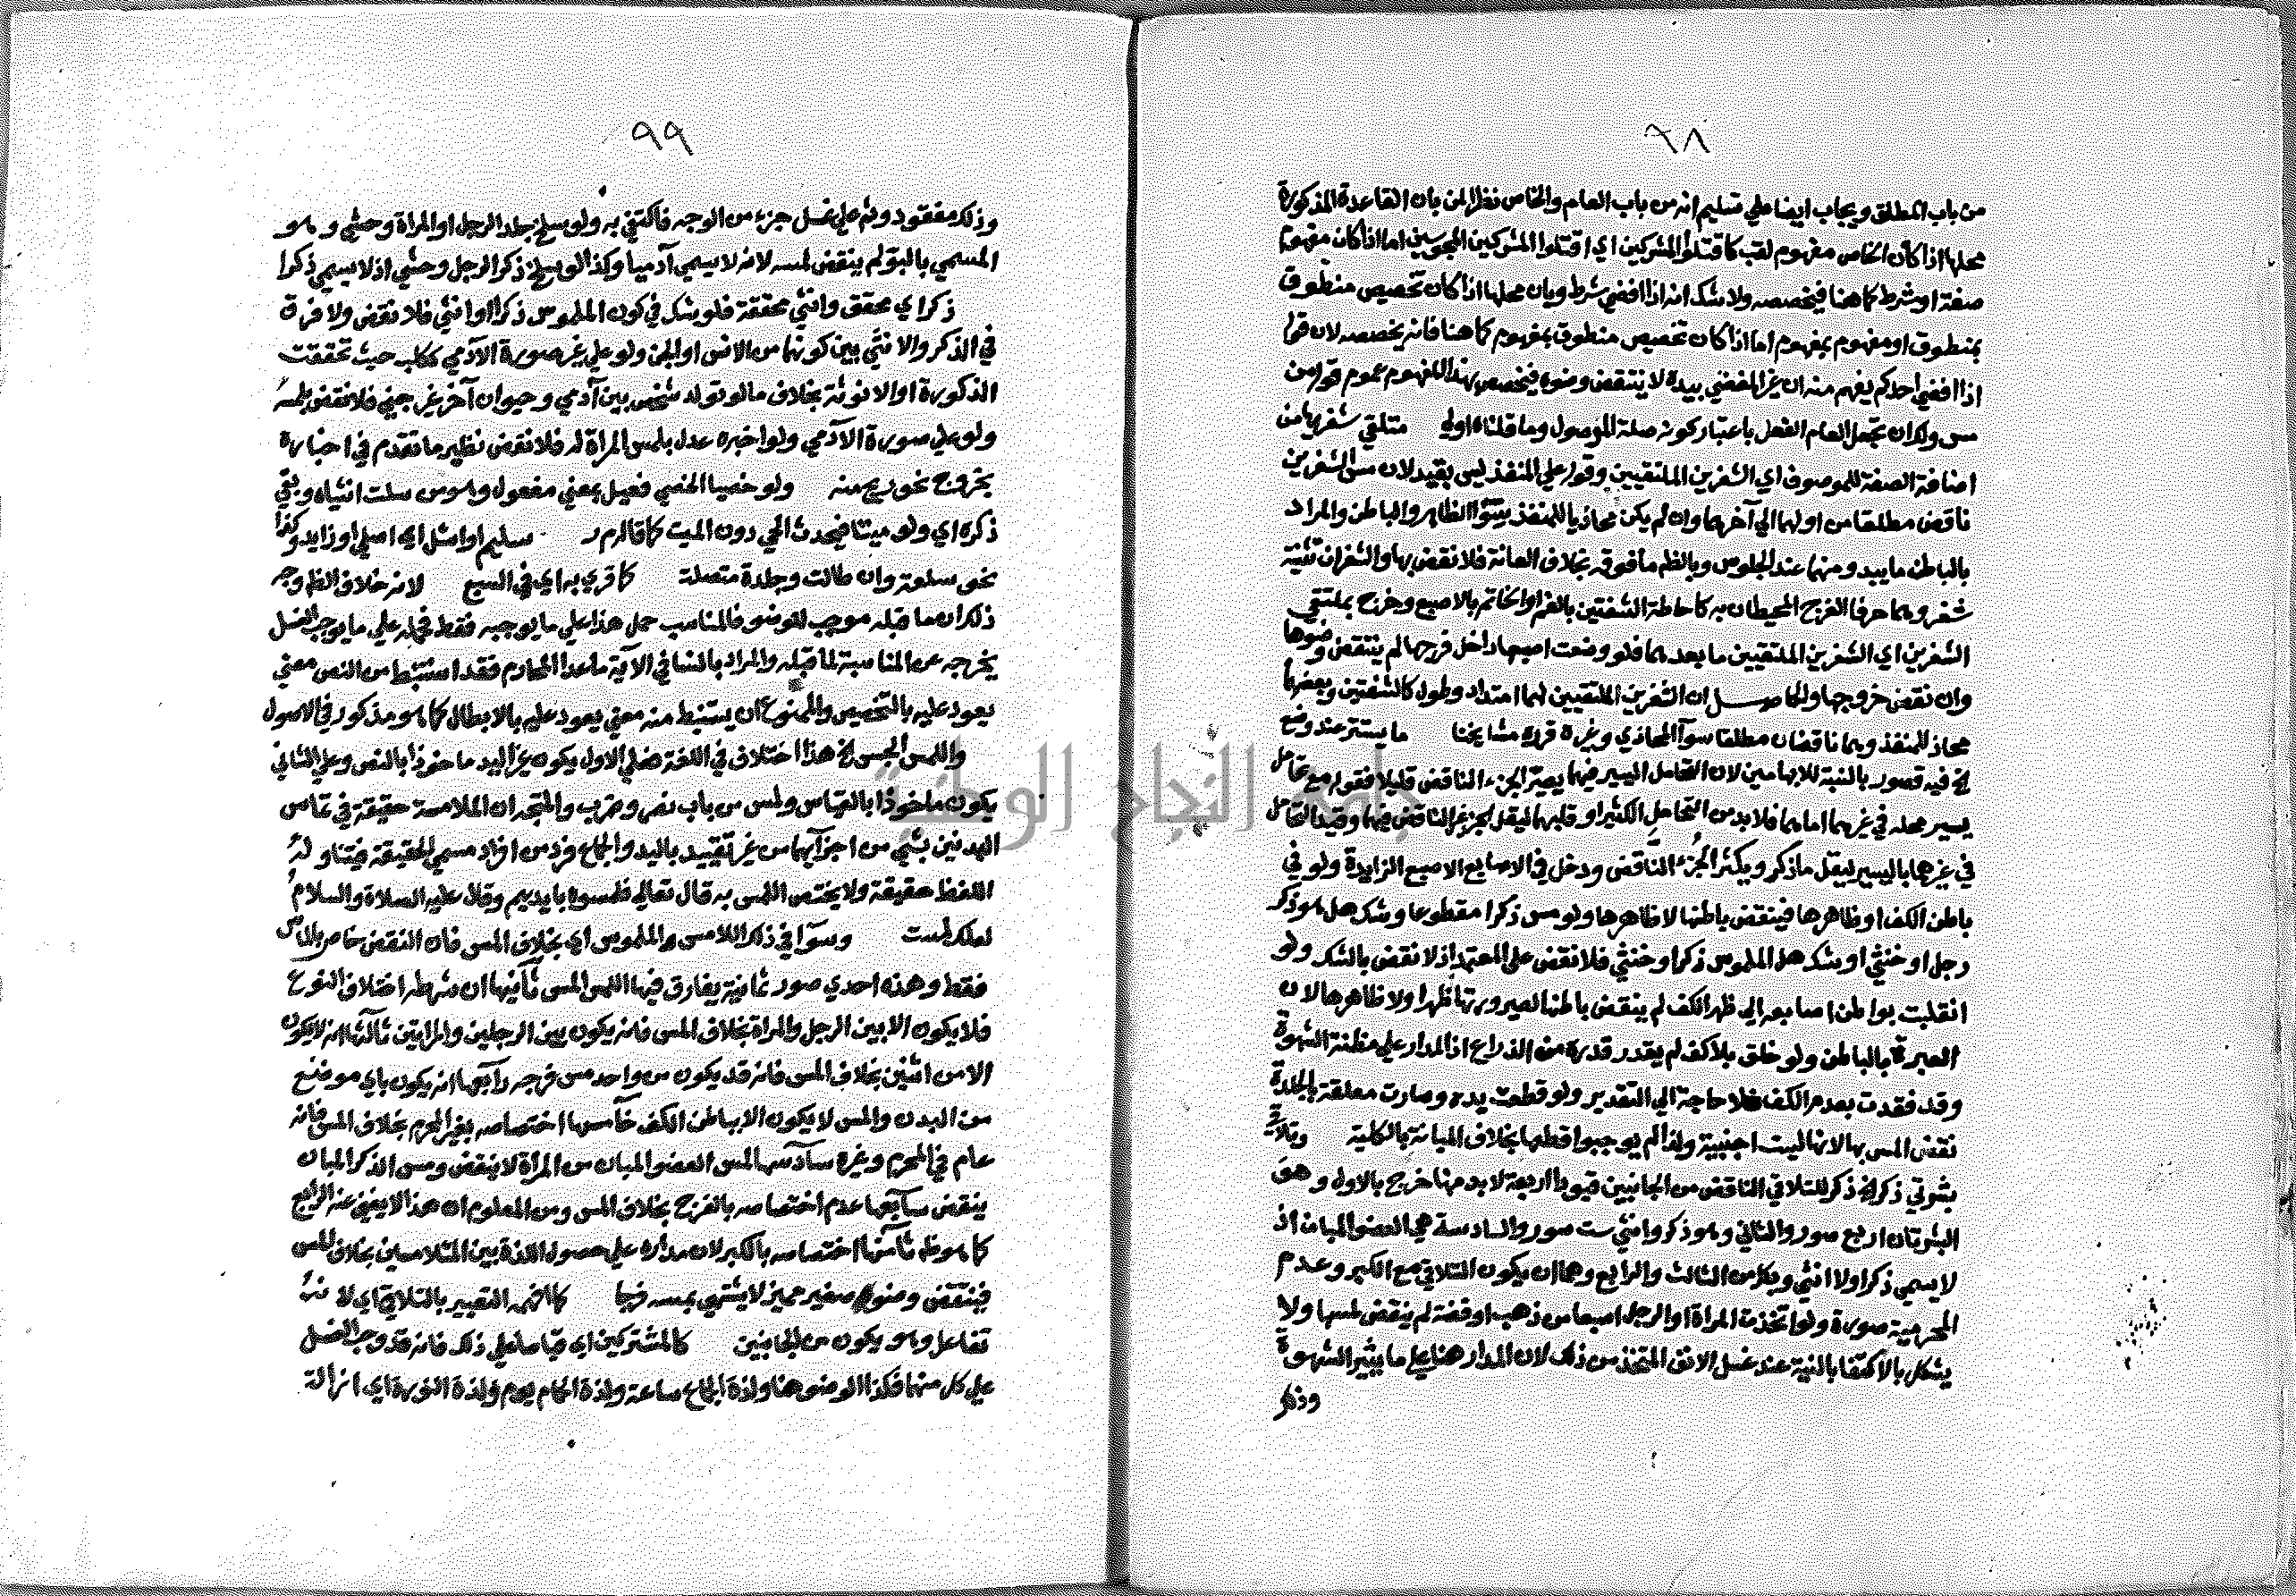 ٩٨
من باب المطلق ويجاب ايضا علي تسليم انه من باب العام والخاص نظرا لمن بان القاعدة المذكورة
محلها اذا كان الخاص مفهوم لقب كاقتلوا المشركين اي اقتلوا المشركين المجوسيين اما اذا كان مفهوم
صفة او شرط كما هنا فيخصصه ولا شك انه اذا افضي شرط وبان محلها اذا كان تخصيص منطوق
بمنطوق او مفهوم بمفهوم اما اذا كان تخصيص منطوق بمفهوم كما هنا فانه يخصصه لان قوله
اذا افضي احدكم يفهم منه ان غير المفضي بيده لا ينتقض وضوه فيخصص بهذا المفهوم عموم قوله من
مس ولك ان تجعل العام الفعل باعتبار كونه صلة الموصول وما قلناه اولي متلقي شفريها من
اضافة الصفة للموصوف اي الشفرين الملتقيين وقوله علي المنفذ ليس بقيد لان مس الشفرين
ناقض مطلقا من اولهما الي آخرهما وان لم يكن محاذيا للمنفذ سوآ الظاهر والباطن والمراد
بالباطن ما يبدو منهما عند الجلوس وبالظهر ما فوقه بخلاف العانة فلا نقض بها والشفران تثنية
شفر وهما حرفا الفرج المحيطان به كاحاطة الشفتين بالفم او الخاتم بالاصبع وخرج بملتقي
الشفرين اي الشفرين الملتقيين ما بعدهما فلو وضعت اصبعها داخل فرجها لم ينتقض وضوها
وان نقض خروجها والحاصل ان الشفرين الملتقيين لهما امتداد وطول كالشفتين وبعضهما
محاذ للمنفذ وهما ناقضان مطلقا سوآ المحاذي وغيره قرره مشايخنا ما يستتر عند وضع
الخ فيه قصور بالنسبة للابهامين لان التحامل اليسير فيهما يصير الجزء الناقض قليلا فقوله مع تحامل
يسير محله في غيرهما اما هما فلا بد من التحامل الكثير او قلبهما ليقل الجزء غير الناقض فيهما وقيد التحامل
في غيرهما باليسير ليقل ما ذكر ويكثر الجزء الناقض ودخل في الاصابع الاصبع الزايدة ولو في
باطن الكف او ظاهرها فينقض باطنها لا ظاهرها ولو مس ذكرا مقطوعا وشك هل هو ذكر
رجل او خنثي او شك هل الملموس ذكرا وخنثي فلا نقض علي المعتمد اذ لا نقض بالشك ولو
انقلبت بواطن اصابعه الي ظهر الكف لم ينقض باطنها لصيرورتها ظهرا ولا ظاهرها لان
العبرة بالباطن ولو خلق بلا كف لم يقدر قدره من الذراع اذ المدار علي مظنة الشهوة
وقد فقدت بعدم الكف فلا حاجة الي التقدير ولو قطعت يده وصارت معلقة بالجلدة
نقض المس بها لانها ليست اجنبية ولذا لم يوجبوا قطعها بخلاف المبانة بالكلية وتلاقي
بشرتي ذكر الخ ذكر للتلاقي الناقض من الجانبين قيودا اربعة لا بد منها خرج بالاول وهو
البشرتان اربع صور والثاني وهو ذكر وانثي ست صور والسادسة هي العضو المبان اذ
لا يسمي ذكرا ولا انثي وبكل من الثالث والرابع وهما ان يكون التلاقي مع الكبر وعدم
المحرمية صورة ولو اتخذت المراة او الرجل اصبعا من ذهب او فضة لم ينقض لمسها ولا
يشكل بالاكتفا بالنية عند غسل الانف المتخذ من ذلك لان المدار هنا علي ما يثير الشهوة
وذلك
٩٩
وذلك مفقود وثم علي غسل جزء من الوجه فاكتفي به ولو سلخ جلد الرجل او المراة وحشي وهو
المسمي بالبو لم ينقض لمسه لانه لا يسمي آدميا وكذا لو سلخ ذكر الرجل وحشي اذ لا يسمي ذكرا
ذكر اي محقق وانثي محققة فلو شك في كون الملموس ذكرا او انثي فلا نقض ولا فرق
في الذكر والانثي بين كونهما من الانس او الجن ولو علي غير صورة الآدمي ككلبه حيث تحققت
الذكورة او الانوثة بخلاف ما لو تولد شخص بين آدمي وحيوان آخر غير جني فلا نقض بلمسه
ولو علي صورة الآدمي ولو اخبره عدل بلمس المراة له فلا نقض نظير ما تقدم في اخباره
بخروج نحو ريح منه ولو خصيا الخصي فعيل بمعني مفعول وهو من سلت انثياه وبقي
ذكره اي ولو ميتا فيحدث الحي دون الميت كما قاله م ر سليم او اشل اي اصلي او زايد وكذا
نحو سلعة وان طالت وجلدة متصلة كما قري به اي في السبع لانه خلاف الظ وجه
ذلك ان ما قبله موجب للوضو فالمناسب حمل هذا علي ما يوجبه فقط فحمله علي ما يوجب الغسل
يخرجه عن المناسبة لما قبله والمراد بالنسا في الآية ما عدا المحارم فقد استنبط من النص معني
يعود عليه بالتخصيص والممنوع ان يستنبط منه معني يعود عليه بالابطال كما هو مذكور في الاصول
واللمس الجس الخ هذا اختلاف في اللغة فعلي الاول يكون غير اليد ماخوذا بالنص وعلي الثاني
يكون ماخوذا بالقياس ولمس من باب نصر وضرب والمتجه ان الملامسة حقيقة في تماس
البدنين بشي من اجزآيهما من غير تقييد باليد والجماع فرد من افراد مسمي الحقيقة فيتناوله
اللفظ حقيقة ولا يختص اللمس به قال تعالي فلمسوه بايديهم وقال عليه الصلاة والسلام
لعلك لمست وسوآ في ذلك اللامس والملموس اي بخلاف المس فان النقض خاص بالماس
فقط وهذه احدي صور ثمانية يفارق فيها اللمس المس ثانيها ان شرطه اختلاف النوع
فلا يكون الا بين الرجل والمراة بخلاف المس فانه يكون بين الرجلين والمراتين ثالثها انه لا يكون
الا من اثنين بخلاف المس فانه قد يكون من واحد مس فرجه رابعها انه يكون باي موضع
من البدن والمس لا يكون الا بباطن الكف خامسها اختصاصه بغير المحرم بخلاف المس فانه
عام في المحرم وغيره سادسها لمس العضو المبان من المراة لا ينقض ومس الذكر المبان
ينقض سابعها عدم اختصاصه بالفرج بخلاف المس ومن المعلوم ان هذا لا يغني عنه الرابع
كما هو ظ ثامنها اختصاصه بالكبر لان مداره علي حصول اللذة بين المتلامسين بخلاف المس
فينقض وضوه صغير مميز لا يشتهي بمسه فرجا كما افهمه التعبير بالتلاقي اي لانه
تفاعل وهو يكون من الجانبين كالمشتركين اي قياسا علي ذلك فانه قد وجب الغسل
علي كل منهما فكذا الوضو هنا ولذة الجماع ساعة ولذة الحمام يوم ولذة النورة اي ازالة
جامعة النجاح الوطنية